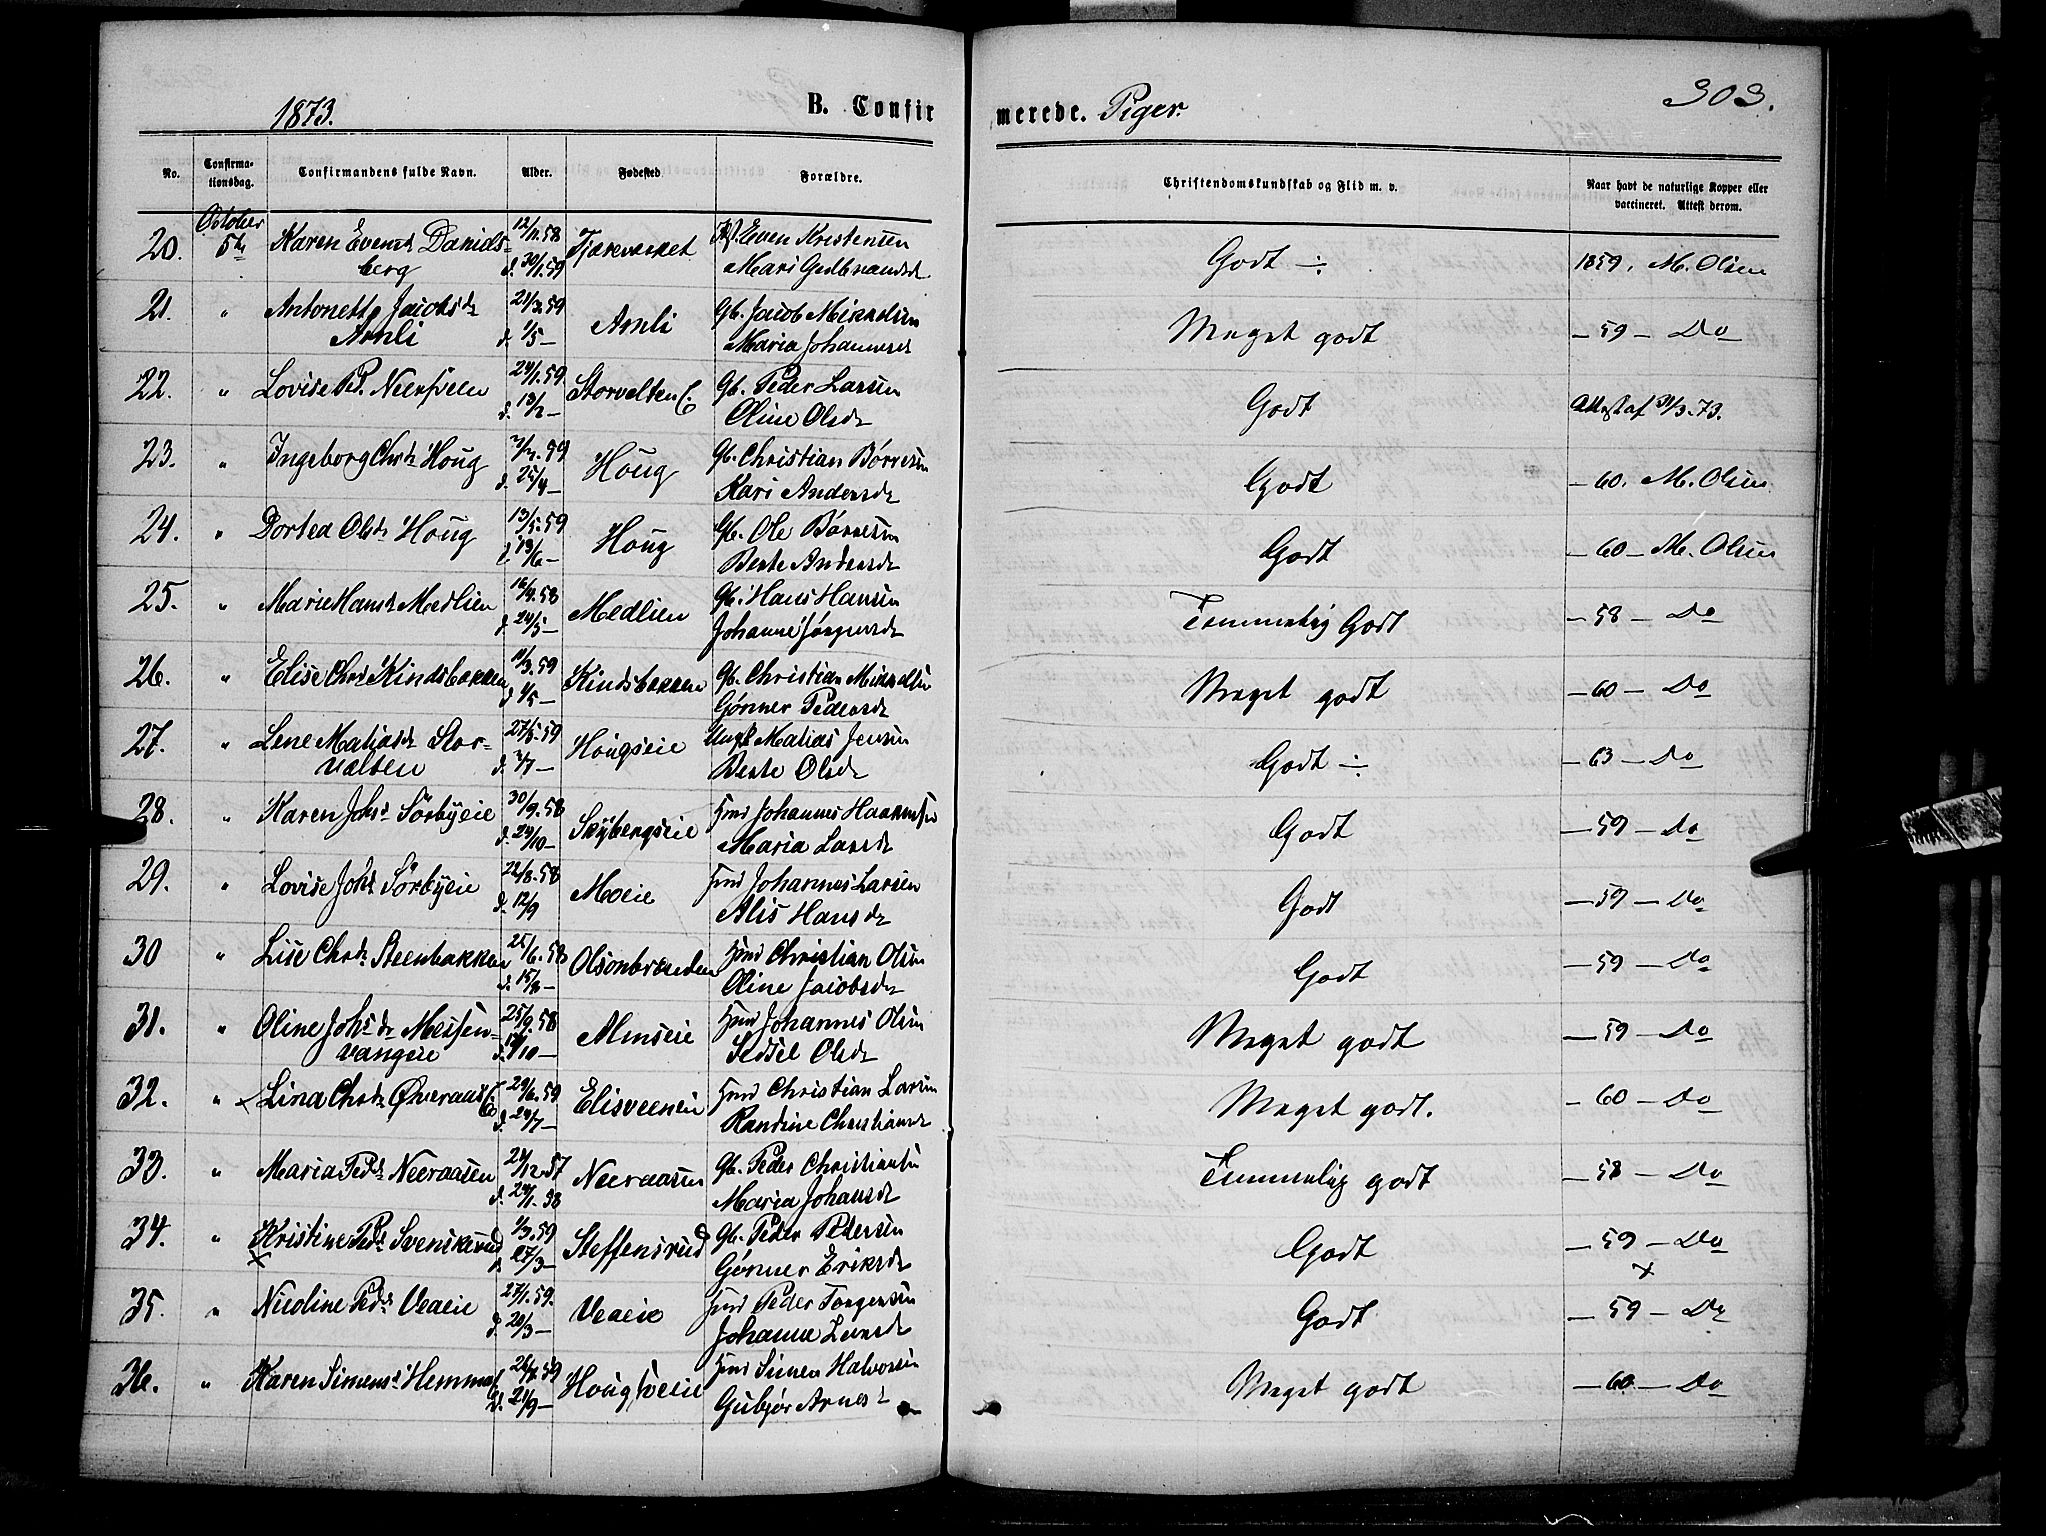 1873.
B. Confirmerede. Piger.
303.
No.
Confirmationsdag.
Confirmandens fulde Navn.
Alder.
Fødested.
Forældre.
Christendomskundskab og Flid m. v.
Naar havt de naturlige Kopper eller vaccineret. Attest derom.
October
20. 5te Karen Evensd. Danidsberg 12/11.58 d. 30/1.59 Even Kristensen Mari Gudbrandsd Godt ÷ 1859. M. Olsen
21. " Antonette Jacobsdr Amli 21/3.59 d. 1/5 — Amli Gb. Jacob Mikkelsen Maria Johannesd Meget godt — 59 — Do
22. " Lovise Pd. 24/1.59 d. 13/2 — Storvelten Gb. Peder Larsen Oline Olsdr Godt Attest af 31/3.73.
23. " Ingeborg Chrdr Houg 59 d. 25/4 — Houg Gb. Christian Børresen Kari Andersdr Godt — 60. M. Olsen
24. " Dortea Olsdr Houg 13/5.59 d. 13/6 — Houg Gb. Ole Børresen Berte Andersdr Godt — 60 — M. Olsen
25. " Marie Hansd. Medlien 16/4.58 d. 24/5 — Medlien Gb. Hans Hansen Johanne Jørgensdr Temmelig Godt — 58 — Do
26. " Elise Chrd Kindsbakken 11/3.59 d. 1/5 — Kindsbakken Gb. Christian Mikkelsen Gørner Pedersdr Meget godt — 60 — Do
27. " Lene Matiasdr Storvelten 27/5.59 d. 2/7 — Hougseie Ungk Matias Jensen Berte Olsdr Godt ÷ — 63 — Do
28. " Karen Johsd. Sørbyeie 30/9.58 d. 24/10 — Skybergseie Hmd Johannes Haakensen Maria Larsdr Godt — 59 — Do
29. " Lovise Johsd Sørbyeie 22/8.58 d. 12/9 Moeie Hmd Johannes Larsen Alis Hansdr Godt — 59 — Do
30 " Lise Chrsdr Steenbakken 25/6.58 d. 15/8 — Olsonbrænden Hmd Christian Olsen Oline Jacobsdr Godt — 59 — Do
31. " Oline Johsdr Messenvangeie 25/9.58 d. 17/10 — Almseie Hmd Johannes Olsen Sidsel Olsdr Meget godt — 59 — Do
32. " × Lina Chrsdr Øveraas 29/6.59 d. 24/7 — Elisveeneie Hmd Christian Larsen Randine Christiansd Meget godt. — 60 — Do
33. " Maria Pedsd. Neeraasen 24/12.57 d. 24/1.58 Neeraasen Gb. Peder Christiansen Maria Johansdr Temmelig godt — 58 — Do
34. " Kristine Pedsd. Svenskerud × 1/3.59 d. 27/3 — Steffensrud Gb. Peder Pedersen Gørner Eriksdr Godt — 59 — Do ×
35. " Nicoline Pedsd. Veaeie 27/1.59. d. 20/3 — Veaeie Hmd Peder Torgersen Johanne Larsdr Godt — 59 — Do
36. " Karen Simensd. Hemma 59 d. 21/9 — Hougsveeie Hmd Simen Halvorsen Gubjør Arnesd Meget godt — 60 — Do